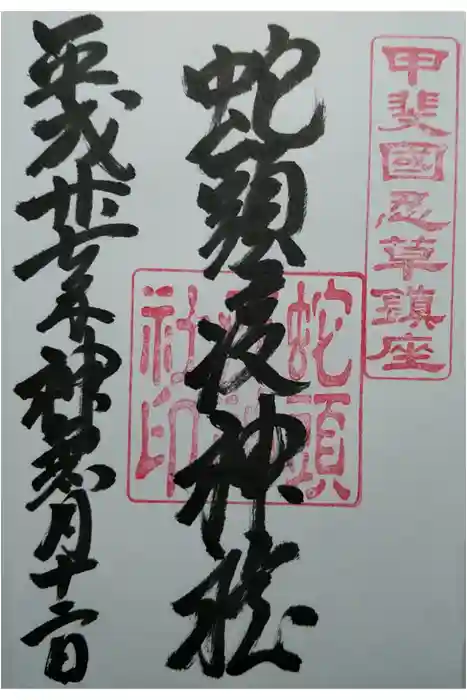 甲斐國忍草鎮座
蛇頭疫神社
平成廿七年神無月十二日
蛇頭
社印